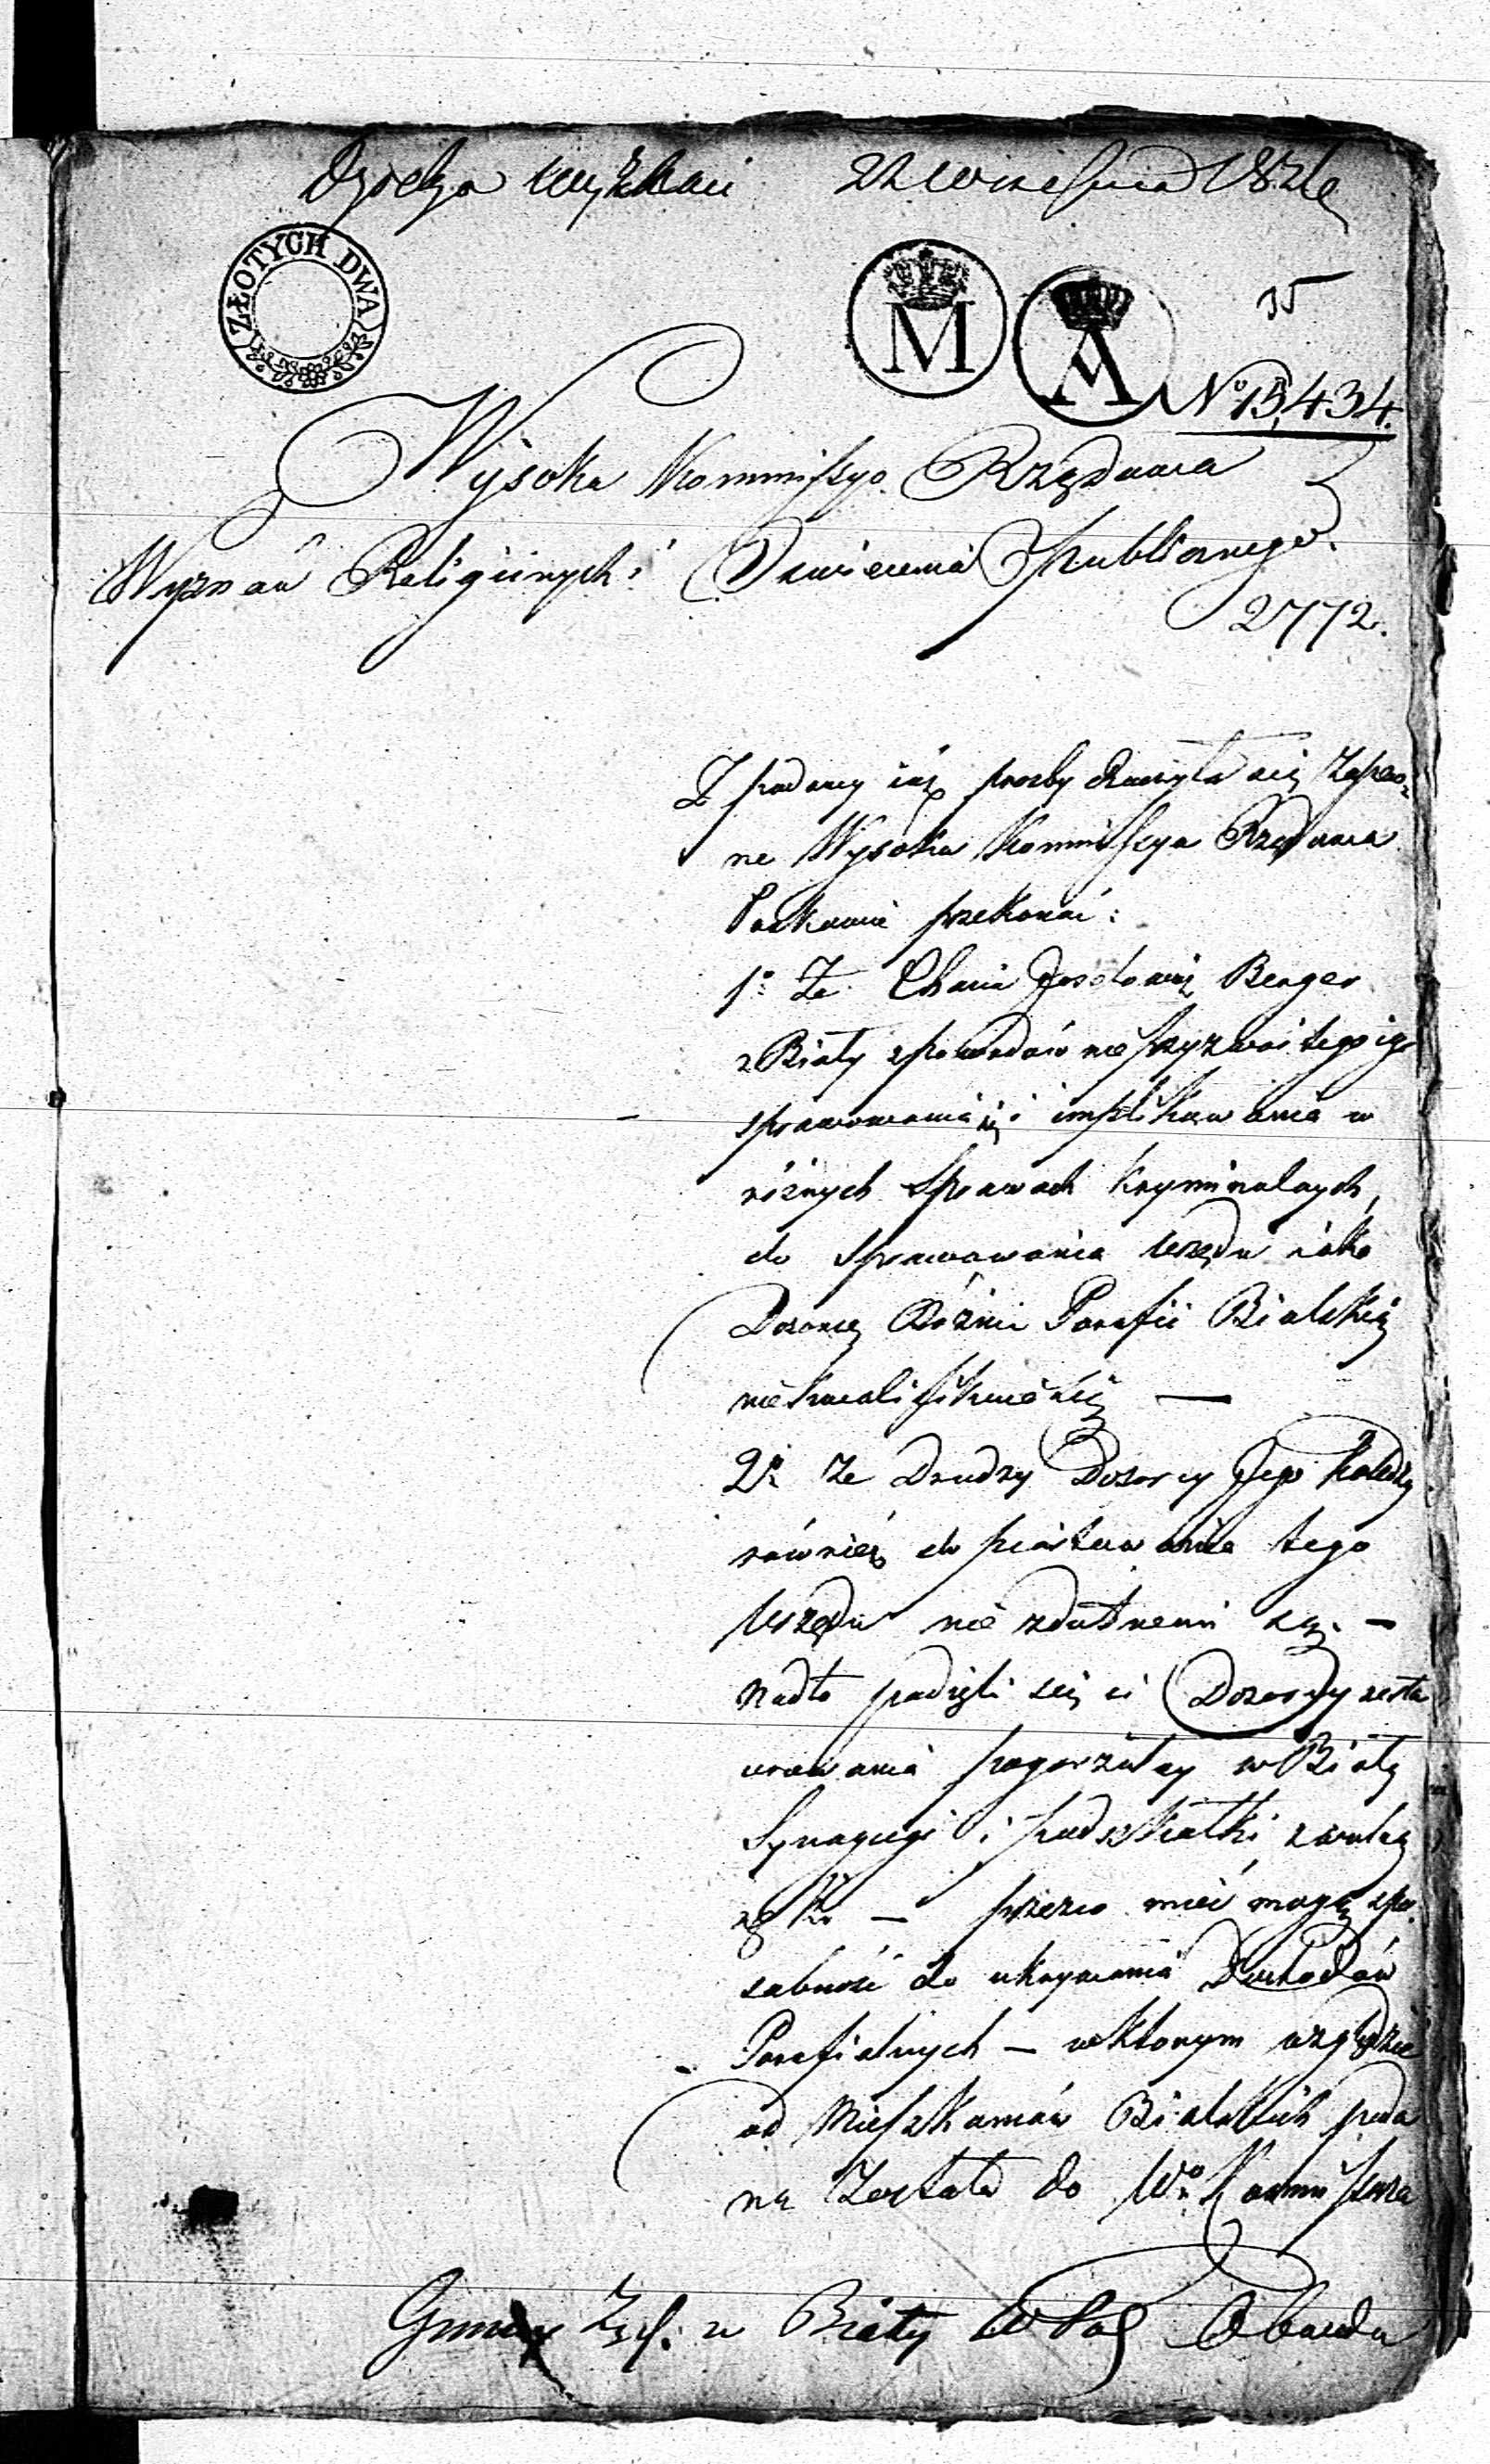 22 Września 1826
ZŁOTYCH DWA
M
A
35
No 15,434.
Wysoka Kommissyo Rządowa
Wyznań Religiinych i Oświecenia Publicznego.
2772.
Z podaney iuż prozby raczyła się zapew-
ne Wysoka Kommissya Rządowa
Łaskawie przekonać:
1o Że Chaim Joselowicz Berger
z Biały z powodów nieprzyzwoitego iego
sprawowania się i implikowania w
różnych Sprawach Kryminalnych,
do sprawowania Urzędu iako
Dozorcy Bóźnic Parafii Bialskiej
niekwalifikuie się —
2o Że Drudzy Dozorcy Jego Koledzy
również do piastowania tego
Urzędu nie zdatnemi są. —
Nadto podięli się ci Dozorcy resta
urowania pogorzałey w Biały
Synagogi i podszkółki
— przezco mieć mogą spo
sobność do ukrywania Dochodów
Parafialnych — w którym względzie
od Mieszkańców Bialskich poda
na została do Wo Kommissarza
Biały Obwodu